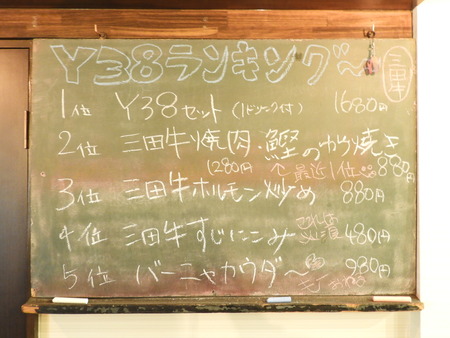 Y38ランキング〜
三田牛
1位 Y38セット (1ドリンク付) 1680円
2位 三田牛焼肉・鰹のわら焼き
1280円 ↑最近1位 880円
3位 三田牛ホルモン炒め 880円
4位 三田牛すじにこみ これは 480円
5位 バーニャカウダ〜 980円